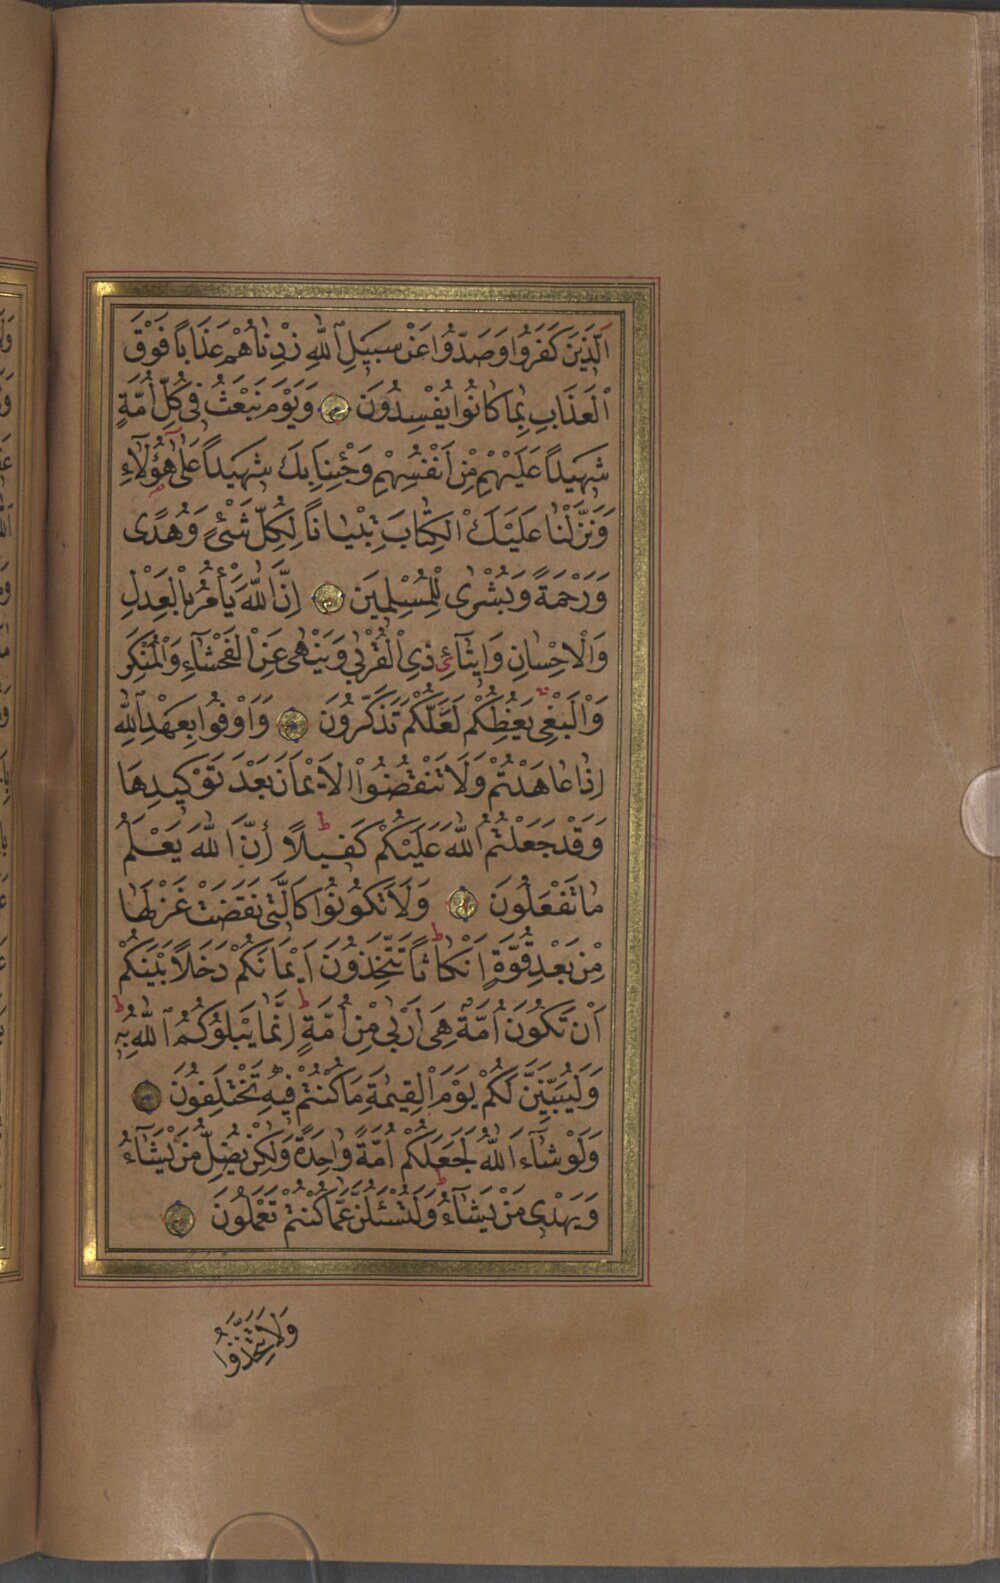 اَلَّذِينَ كَفَرُوا وَصَدُّوا عَنْ سَبِيلِ اللّٰهِ زِدْنَاهُمْ عَذَاباً فَوْقَ
الْعَذَابِ بِمَا كَانُوا يُفْسِدُونَ وَيَوْمَ نَبْعَثُ فِى كُلِّ اُمَّةٍ
شَهِيداً عَلَيْهِمْ مِنْ اَنْفُسِهِمْ وَجِئْنَا بِكَ شَهِيداً عَلٰى هٰٓؤُلَٓاءِ
وَنَزَّلْنَا عَلَيْكَ الْكِتَابَ تِبْيَاناً لِكُلِّ شَىْءٍ وَهُدًى
وَرَحْمَةً وَبُشْرٰى لِلْمُسْلِمِينَ اِنَّ اللّٰهَ يَأْمُرُ بِالْعَدْلِ
وَالْاِحْسَانِ وَاِيتَٓائِ ذِى الْقُرْبٰى وَيَنْهٰى عَنِ الْفَحْشَٓاءِ وَالْمُنْكَرِ
وَالْبَغْىِ يَعِظُكُمْ لَعَلَّكُمْ تَذَكَّرُونَ وَاَوْفُوا بِعَهْدِ اللّٰهِ
اِذَا عَاهَدْتُمْ وَلَا تَنْقُضُوا الْاَيْمَانَ بَعْدَ تَوْكِيدِهَا
وَقَدْ جَعَلْتُمُ اللّٰهَ عَلَيْكُمْ كَفِيلاً اِنَّ اللّٰهَ يَعْلَمُ
مَا تَفْعَلُونَ وَلَا تَكُونُوا كَالَّتِى نَقَضَتْ غَزْلَهَا
مِنْ بَعْدِ قُوَّةٍ اَنْكَاثاً تَتَّخِذُونَ اَيْمَانَكُمْ دَخَلاً بَيْنَكُمْ
اَنْ تَكُونَ اُمَّةٌ هِىَ اَرْبٰى مِنْ اُمَّةٍ اِنَّمَا يَبْلُوكُمُ اللّٰهُ بِهِ
وَلَيُبَيِّنَنَّ لَكُمْ يَوْمَ الْقِيٰمَةِ مَا كُنْتُمْ فِيهِ تَخْتَلِفُونَ
وَلَوْ شَٓاءَ اللّٰهُ لَجَعَلَكُمْ اُمَّةً وَاحِدَةً وَلٰكِنْ يُضِلُّ مَنْ يَشَٓاءُ
وَيَهْدِى مَنْ يَشَٓاءُ وَلَتُسْئَلُنَّ عَمَّا كُنْتُمْ تَعْمَلُونَ
وَلَا تَتَّخِذُوا